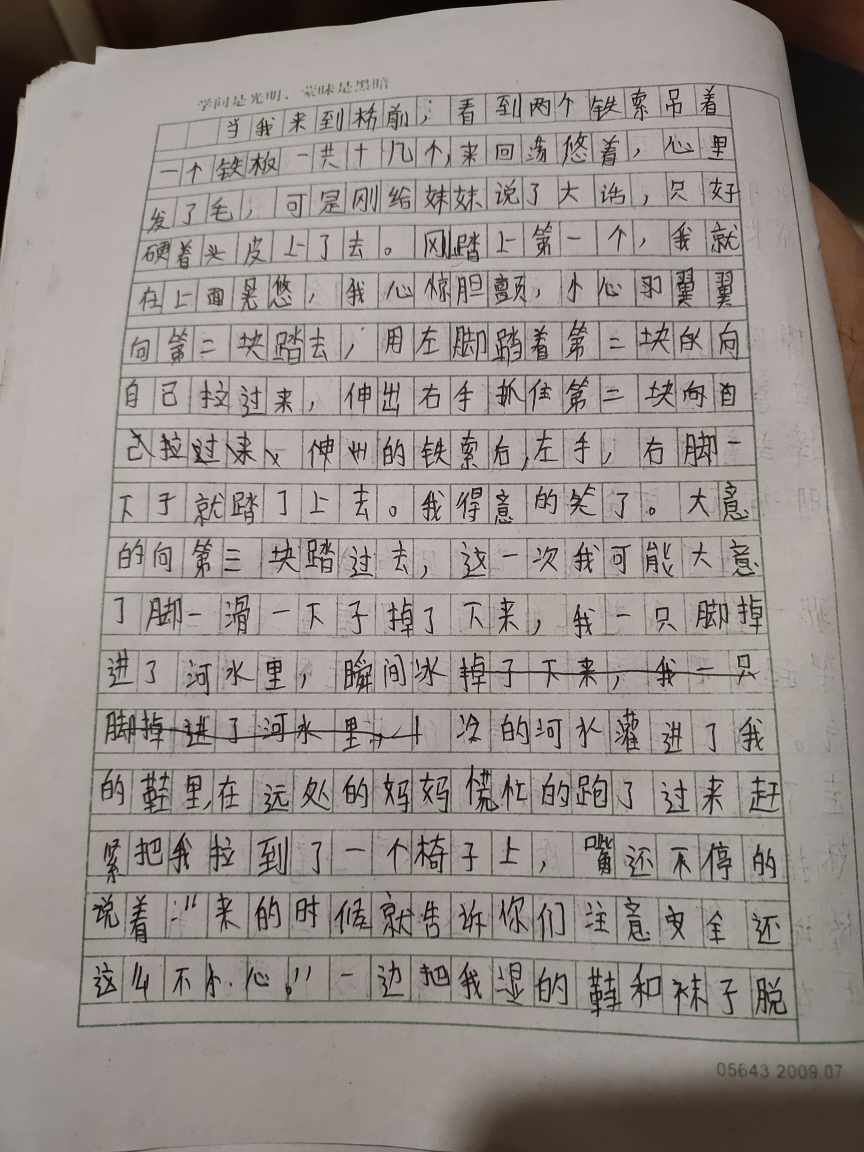 学问是光明，蒙昧是黑暗
当我来到桥前，看到两个铁索吊着
一个铁板一共十几个，来回荡悠着，心里
发了毛，可是刚给妹妹说了大话，只好
硬着头皮上了去。刚踏上第一个，我就
在上面晃悠，我心惊胆颤，小心翼翼
向第二块踏去，用左脚踏着第二块的向
自己拉过来，伸出右手抓住第二块向自
己拉过来，伸出的铁索后，左手，右脚一
下子就踏了上去。我得意的笑了。大意
的向第三块踏过去，这一次我可能大意
了脚一滑一下子掉了下来，我一只脚掉
进了河水里，瞬间冰掉了下来，我一只
脚掉进了河水里，冷的河水灌进了我
的鞋里，在远处的妈妈慌忙的跑了过来赶
紧把我拉到了一个椅子上，嘴还不停的
说着："来的时候就告诉你们注意安全还
这么不小心。"一边把我湿的鞋和袜子脱
05643 2009.07